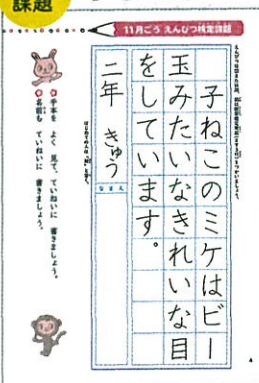 課題
11月ごう えんぴつ検定課題
子ねこのミケはビー
玉みたいなきれいな目
をしています。
二年 きゅう
なまえ
手本を よく 見て、ていねいに 書きましょう。
名前も ていねいに 書きましょう。